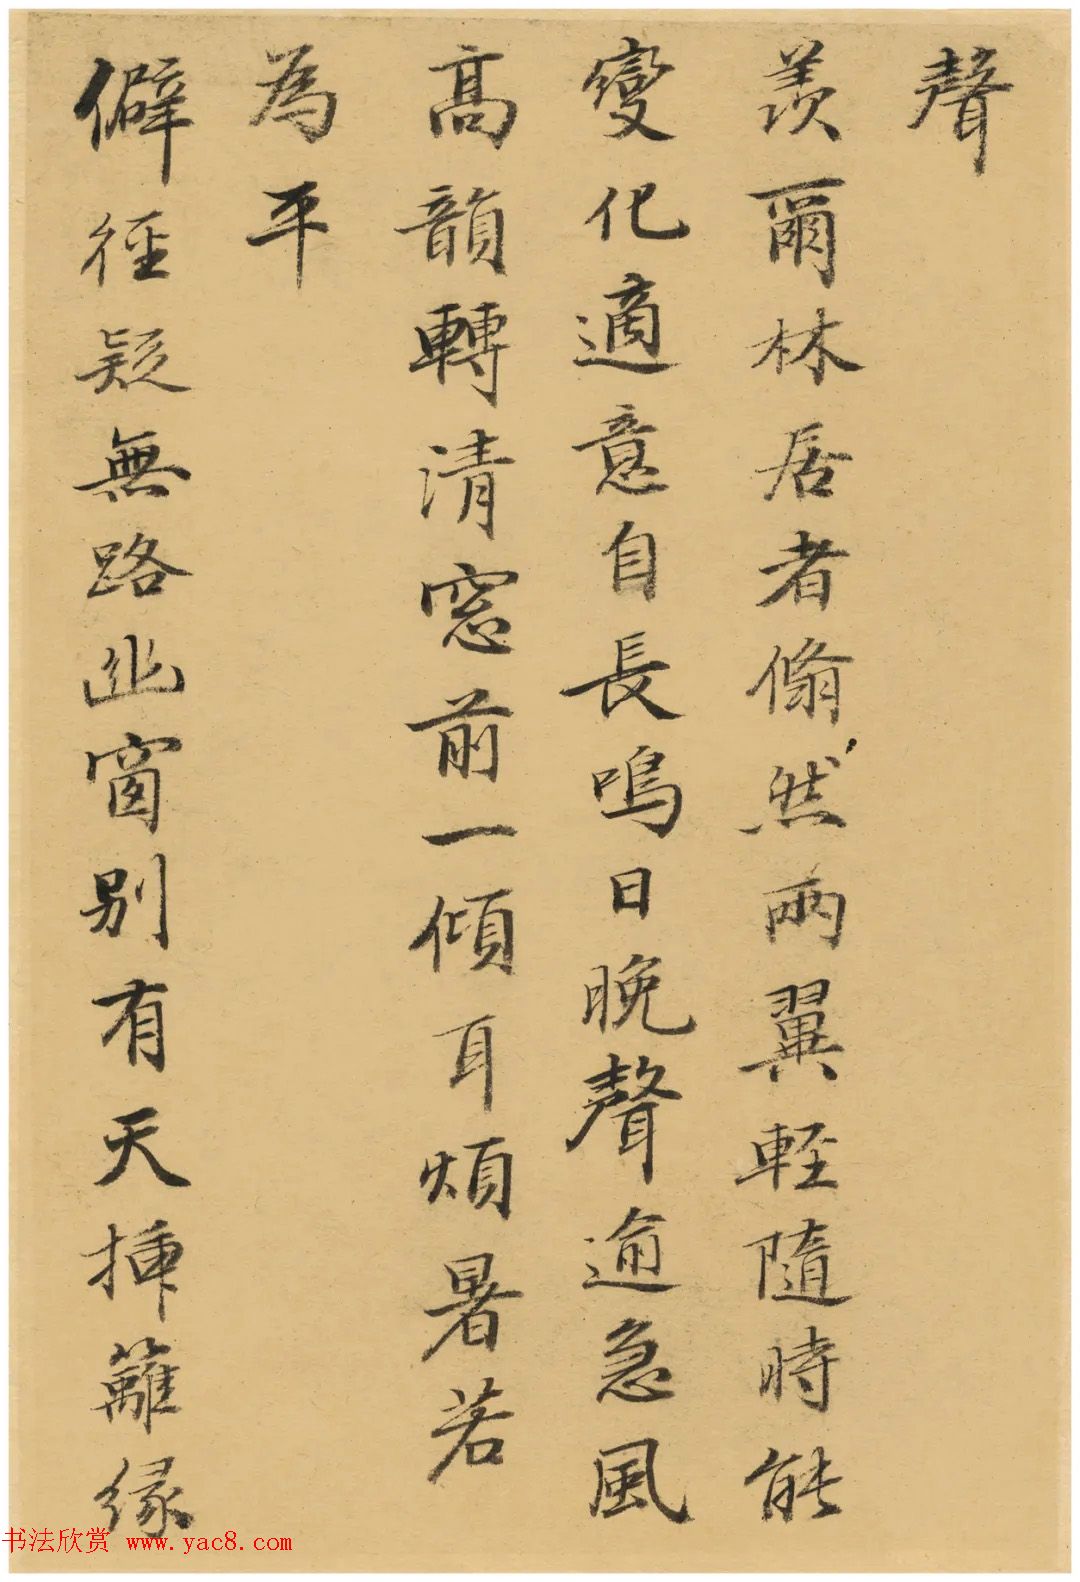 聲
羨爾林居者翛然兩翼輕隨時能
變化適意自長鳴日晚聲逾急風
高韻轉清窓前一傾耳煩暑若
為平
僻徑疑無路幽窗別有天揷籬緣
书法欣赏 www.yac8.com